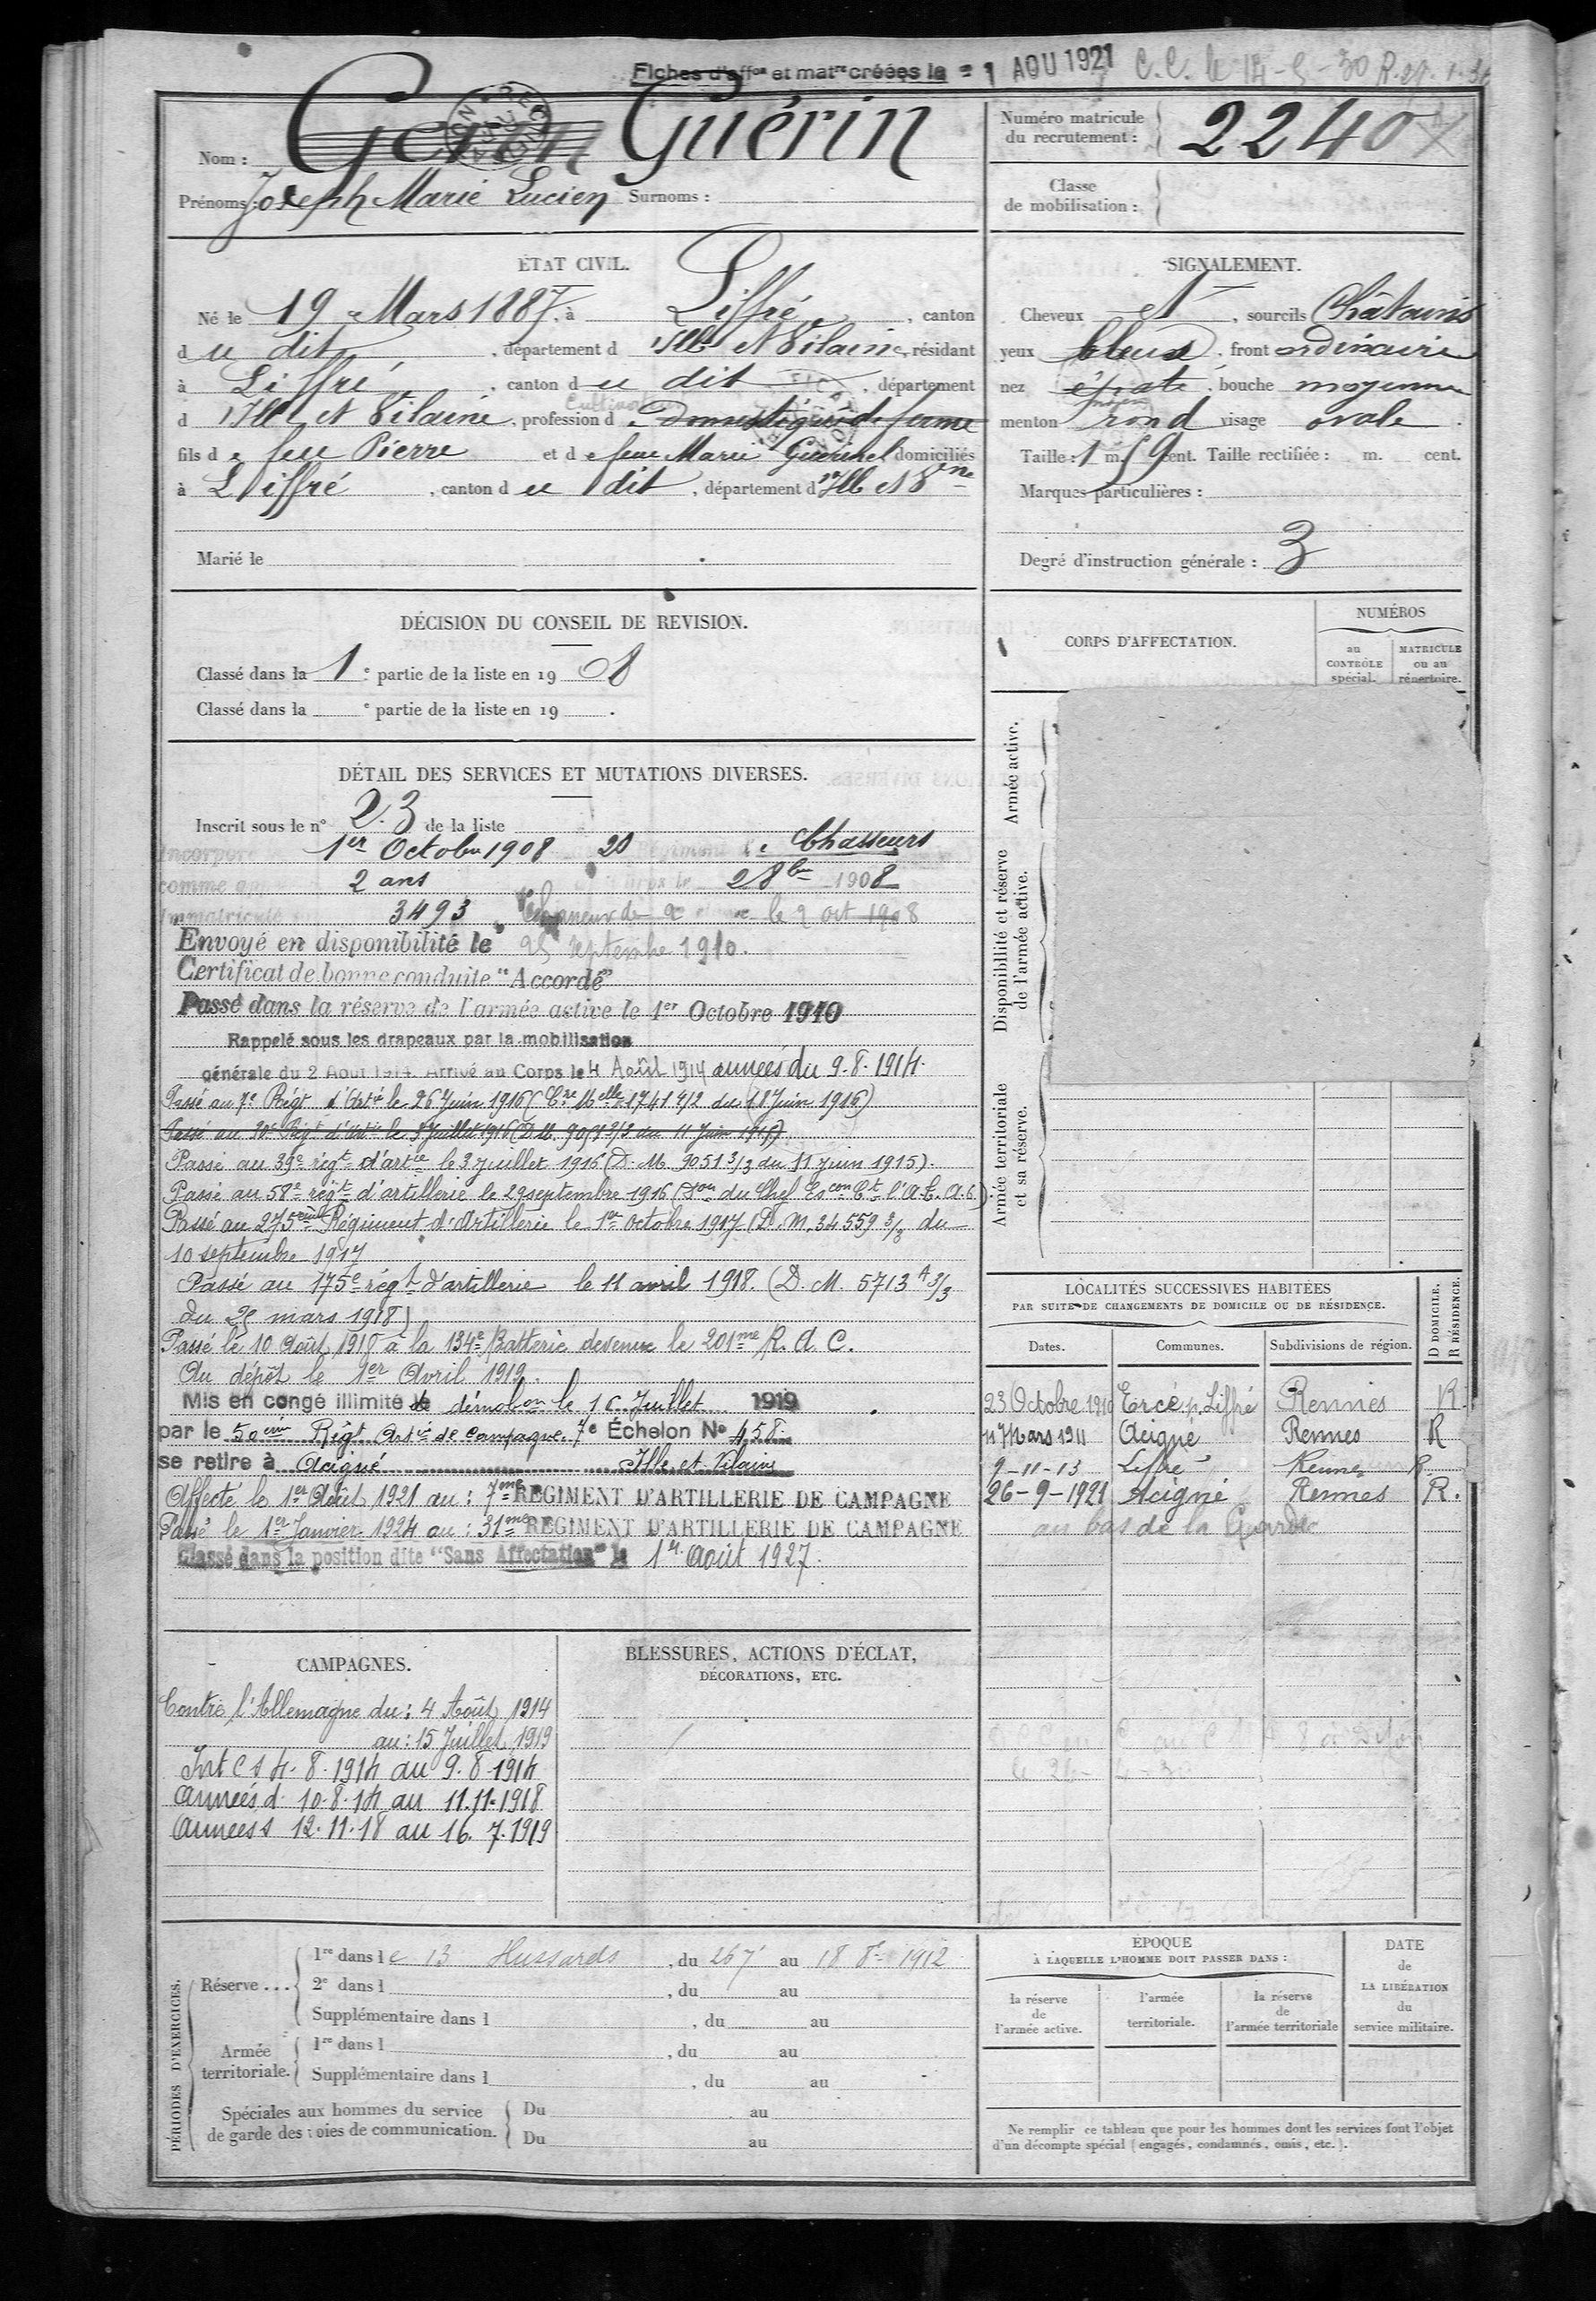 Fiches d'aff<sup>on</sup> et mat<sup>re</sup> créées le = 1 AOU 1921 C.C. le 14-5-30
Nom : Guérin
Prénoms : Joseph Marie Lucien Surnoms :
Numéro matricule
du recrutement : 2240
Classe
de mobilisation :
ÉTAT CIVIL.
Né le 19 Mars 1887, à Liffré, canton
du dit, département d'Ille et Vilaine, résidant
à Liffré, canton du dit, département
d'Ille et Vilaine, profession de Domestique de ferme
Cultivateur
fils de feu Pierre et de feue Marie Guérinel domiciliés
à Liffré, canton du dit, département d'Ille et V<sup>ne</sup>
Marié le
SIGNALEMENT.
Cheveux et, sourcils Châtains
yeux bleus, front ordinaire
nez épaté, bouche moyenne
menton rond visage ovale.
Taille : 1 m. 59 cent. Taille rectifiée : m. cent.
Marques particulières :
Degré d'instruction générale : 3
DÉCISION DU CONSEIL DE REVISION.
Classé dans la 1<sup>e</sup> partie de la liste en 1908
Classé dans la <sup>e</sup> partie de la liste en 19 .
DÉTAIL DES SERVICES ET MUTATIONS DIVERSES.
Inscrit sous le n° 23 de la liste
Incorporé 1er Octobre 1908 Chasseurs
comme 2 ans 2 8bre 1908
Immatriculé 3493 le 2 oct 1908
Envoyé en disponibilité le 25 septembre 1910.
Certificat de bonne conduite "Accordé"
Passé dans la réserve de l'armée active le 1er Octobre 1910
Rappelé sous les drapeaux par la mobilisation
générale du 2 Août 1914. Arrivé au Corps le 4 Août 1914 armées du 9.8.1914.
Passé au 7e Régt d'Artie le 26 Juin 1916 (Cre Melle 17414 1/2 du 18 Juin 1916)
Passé au 39e régt d'artie le 3 juillet 1916 (D. M. 9051 3/3 du 11 juin 1915).
Passé au 58e régt d'artillerie le 29 septembre 1916 (Don du Chef Escon Ct l'A.C.A.6)
Passé au 275ème Régiment d'Artillerie le 1er octobre 1917 (D. M. 34559 3/3 du
10 septembre 1917
Passé au 175e régt d'artillerie le 11 avril 1918. (D. M. 5713 A 3/3
du 25 mars 1918)
Passé le 10 Août 1918 à la 134e Batterie devenue le 201me R. A. C.
Au dépôt le 1er Avril 1919.
Mis en congé illimité de démobon le 16 Juillet 1919
par le 50ème Régt Artie de Campagne 7e Échelon No 458
se retire à Acigné Ille et Vilaine
Affecté le 1er Août 1921 au : 7me RÉGIMENT D'ARTILLERIE DE CAMPAGNE
Passé le 1er Janvier 1924 au : 31me RÉGIMENT D'ARTILLERIE DE CAMPAGNE
Classé dans la position dite "Sans Affectation" le 1er Août 1927.
CORPS D'AFFECTATION.
NUMÉROS
au
CONTRÔLE
spécial.
MATRICULE
ou au
répertoire.
Armée active.
Disponibilité et réserve
de l'armée active.
Armée territoriale
et sa réserve.
LOCALITÉS SUCCESSIVES HABITÉES
PAR SUITE DE CHANGEMENTS DE DOMICILE OU DE RÉSIDENCE.
Dates. Communes. Subdivisions de région.
D DOMICILE.
R RÉSIDENCE.
23 Octobre 1910 Ercé p. Liffré Rennes R.
17 Mars 1911 Acigné Rennes R
9-11-13 Liffré Rennes R
26-9-1921 Acigné Rennes R.
au bas de la
CAMPAGNES.
Contre l'Allemagne du : 4 Août 1914
au : 15 Juillet 1919
Int C S 4.8.1914 au 9.8.1914
Armées d. 10.8.14 au 11.11.1918
Armées s 12.11.18 au 16.7.1919
BLESSURES, ACTIONS D'ÉCLAT,
DÉCORATIONS, ETC.
PÉRIODES D'EXERCICES.
Réserve ...
1re dans le 13 Hussards, du 26 7e au 18 8e 1912
2e dans l , du au
Supplémentaire dans l , du au
Armée
territoriale.
1re dans l , du au
Supplémentaire dans l , du au
Spéciales aux hommes du service
de garde des voies de communication.
Du au
Du au
ÉPOQUE
À LAQUELLE L'HOMME DOIT PASSER DANS :
la réserve
de
l'armée active.
l'armée
territoriale.
la réserve
de
l'armée territoriale
DATE
de
LA LIBÉRATION
du
service militaire.
Ne remplir ce tableau que pour les hommes dont les services font l'objet
d'un décompte spécial (engagés, condamnés, omis, etc.).